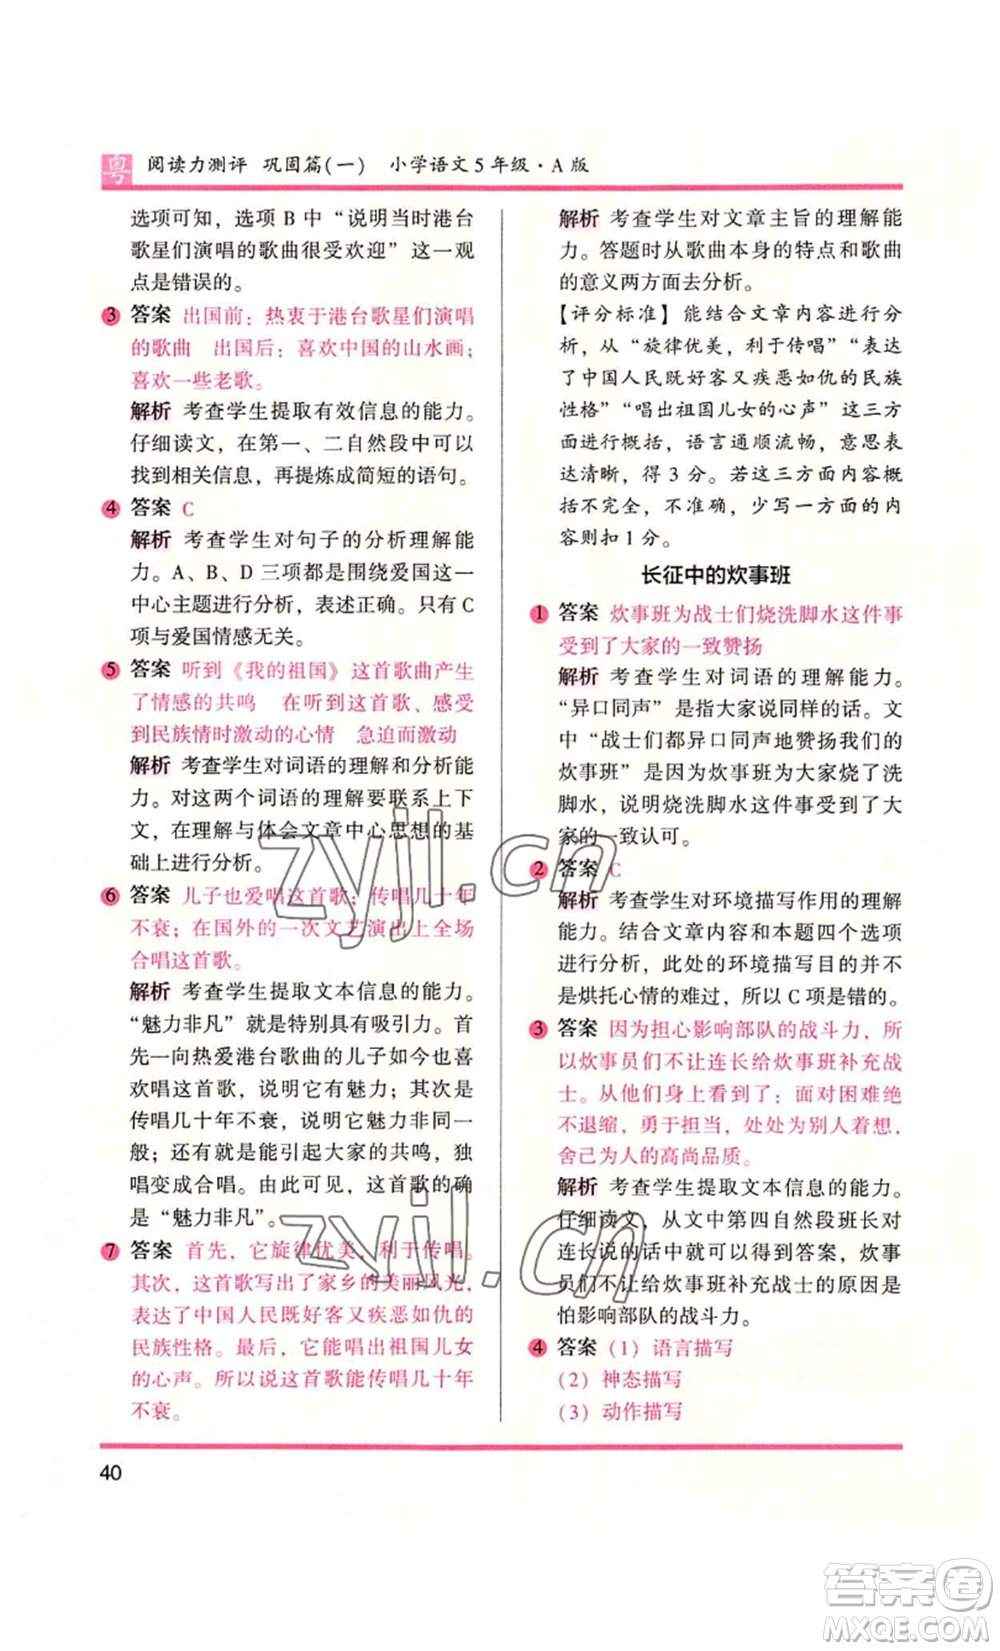 粤 阅读力测评 巩固篇(一) 小学语文5年级·A版
选项可知，选项 B 中“说明当时港台
歌星们演唱的歌曲很受欢迎”这一观
点是错误的。
3 答案 出国前：热衷于港台歌星们演唱
的歌曲 出国后：喜欢中国的山水画；
喜欢一些老歌。
解析 考查学生提取有效信息的能力。
仔细读文，在第一、二自然段中可以
找到相关信息，再提炼成简短的语句。
4 答案 C
解析 考查学生对句子的分析理解能
力。A、B、D 三项都是围绕爱国这一
中心主题进行分析，表述正确。只有 C
项与爱国情感无关。
5 答案 听到《我的祖国》这首歌曲产生
了情感的共鸣 在听到这首歌、感受
到民族情时激动的心情 急迫而激动
解析 考查学生对词语的理解和分析能
力。对这两个词语的理解要联系上下
文，在理解与体会文章中心思想的基
础上进行分析。
6 答案 儿子也爱唱这首歌；传唱几十年
不衰；在国外的一次文艺演出上全场
合唱这首歌。
解析 考查学生提取文本信息的能力。
“魅力非凡”就是特别具有吸引力。首
先一向热爱港台歌曲的儿子如今也喜
欢唱这首歌，说明它有魅力；其次是
传唱几十年不衰，说明魅力非同一
般；然后是能引起大家的共鸣，独
唱变成合唱。因此，这首歌的确
是“魅力非凡”。
7 答案 首先，它旋律优美，利于传唱。
其次，这首歌写出了家乡的美丽风光，
表达了中国人民既好客又疾恶如仇的
民族性格。最后，它能唱出祖国儿女
的心声。所以说这首歌能传唱几十年
不衰。
解析 考查学生对文章主旨的理解能
力。答题时从歌曲本身的特点和歌曲
的意义两方面去分析。
【评分标准】能结合文章内容进行分
析，从“旋律优美，利于传唱”“表达
了中国人民既好客又疾恶如仇的民族
性格”“唱出祖国儿女的心声”这三方
面进行概括，语言通顺流畅，意思表
达清晰，得 3 分。若这三方面内容概
括不完全，不准确，少写一方面内容
则扣 1 分。
长征中的炊事班
1 答案 炊事班为战士们烧洗脚水这件事
受到了大家的一致赞扬
解析 考查学生对词语的理解能力。
“异口同声”是指大家说同样的话。文
中“战士们都异口同声地赞扬我们的
炊事班”是因为炊事班为大家烧了洗
脚水，说明烧洗脚水这件事受到了大
家的一致认可。
2 答案 C
解析 考查学生对环境描写作用的理解
能力。结合文章内容和本题四个选项
进行分析，此处的环境描写目的并不
是烘托心情的难过，所以 C 项是错的。
3 答案 因为担心影响部队的战斗力，所
以炊事员们不让连长给炊事班补充战
士。从他们身上看到了：面对困难绝
不退缩，勇于担当，处处为别人着想，
舍己为人的高尚品质。
解析 考查学生提取文本信息的能力。
仔细读文，从文中第四自然段班长对
连长说的话中就可以得到答案，炊事
员们不让给炊事班补充战士的原因是
怕影响部队的战斗力。
4 答案 (1) 语言描写
(2) 神态描写
(3) 动作描写
40
zyjl.cn
zyjl.cn
答案圈
MXQE.COM